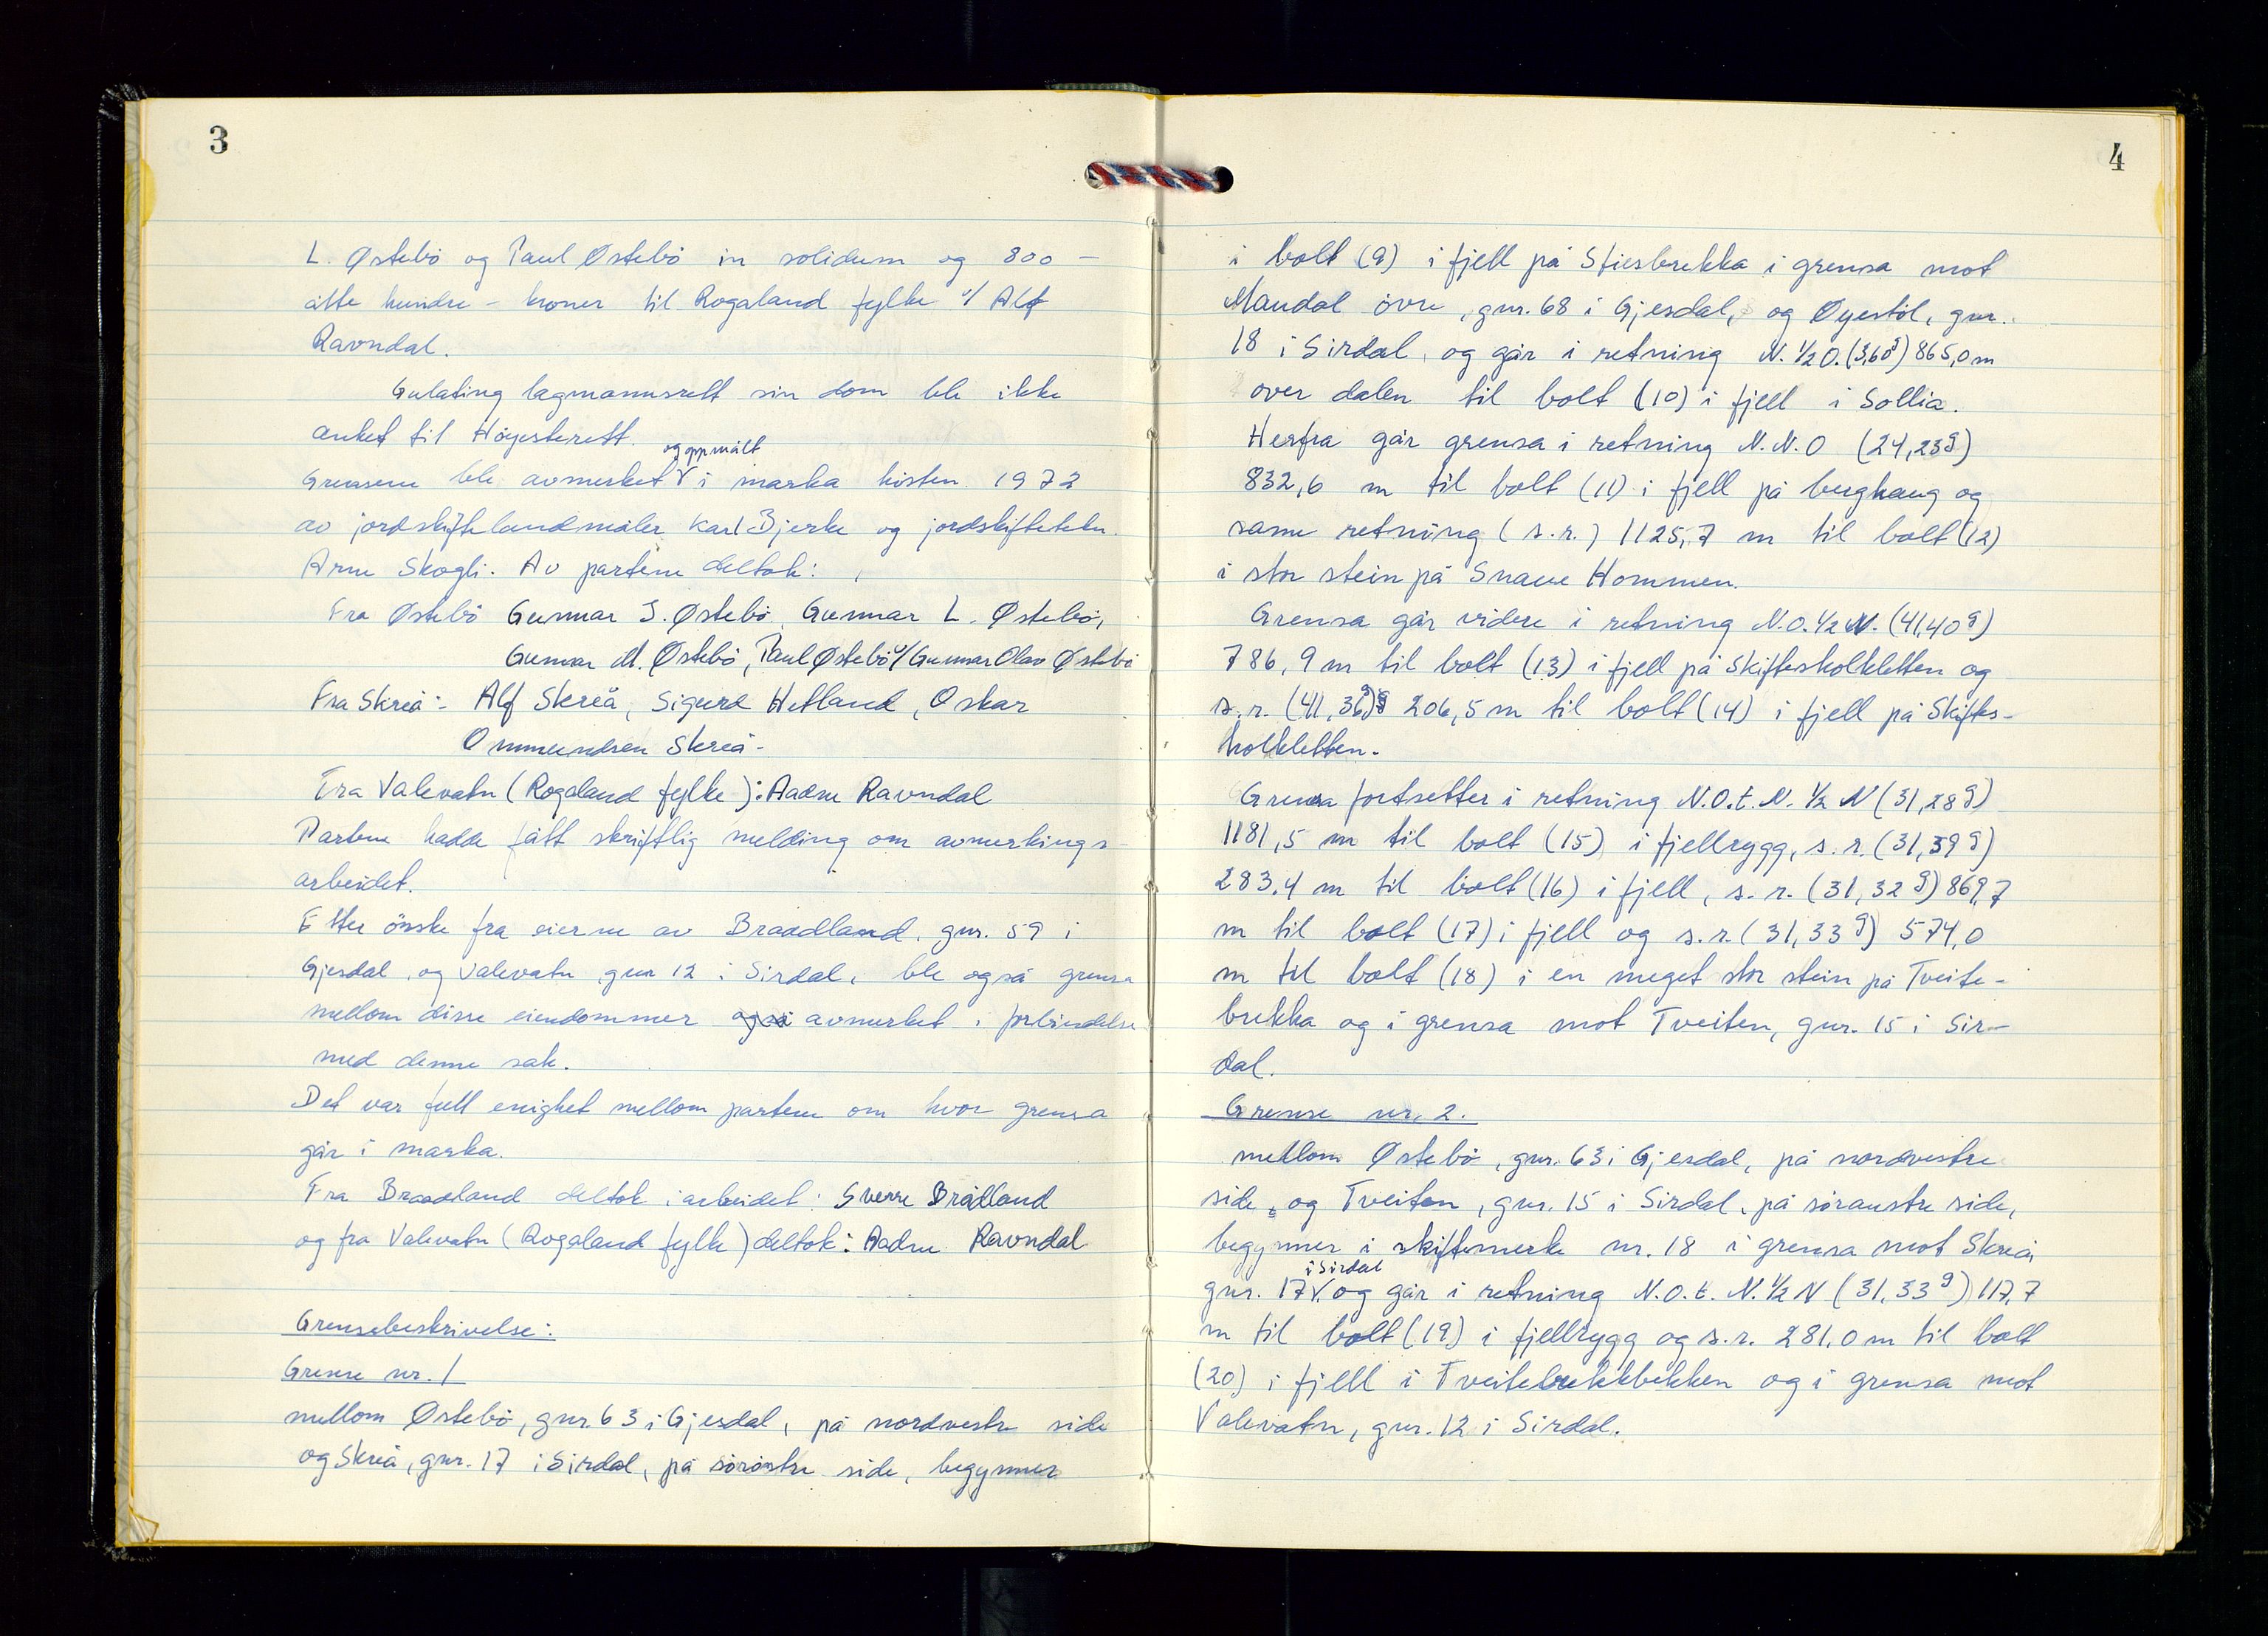 3
L. Østebö og Paul Østebö in solidum og 800 –
åtte hundre – kroner til Rogaland fylke v/ Alf
Ravndal.
Gulating lagmannsrett sin dom ble ikke
anket til Höyesterett.
og oppmålt
Grensene ble avmerket V i marka hösten 1972
av jordskiftelandmåler Karl Bjerke og jordskiftetekn.
Arne Skogli. Av partene deltok:
Fra Østebö Gunnar J. Østebö, Gunnar L. Østebö,
Gunnar M. Østebö, Paul Østebö v/ Gunnar Olav Østebö
Fra Skreå: Alf Skreå, Sigurd Hetland, Oskar
Ommundsen Skreå.
Fra Valevatn (Rogaland fylke): Aadne Ravndal
Partene hadde fått skriftlig melding om avmerkings-
arbeidet.
Etter önske fra eierne av Braadland, gnr. 59 i
Gjesdal, og Valevatn gnr 12 i Sirdal, ble også grensa
mellom disse eiendommer også avmerket i forbindelse
med denne sak.
Det var full enighet mellom partene om hvor grensa
går i marka.
Fra Braadland deltok i arbeidet: Sverre Brådland
og fra Valevatn (Rogaland fylke) deltok: Aadne Ravndal
Grensebeskrivelse:
Grense nr. 1
mellom Østebö, gnr. 63 i Gjesdal, på nordvestre side
og Skreå, gnr. 17 i Sirdal, på söröstre side, begynner
4
i bolt (9) i fjell på Stiesbrekka i grensa mot
Maudal övre, gnr. 68 i Gjesdal, og Øyestöl, gnr.
18 i Sirdal, og går i retning N. 1/2 O. (3,60g) 865,0 m
over dalen til bolt (10) i fjell i Sollia.
Herfra går grensa i retning N.N.O (24,23g)
832,6 m til bolt (11) i fjell på berghaug og
same retning (s.r.) 1125,7 m til bolt (12)
i stor stein på Snaue Hommen.
Grensa går videre i retning N.O. 1/2 N. (41,40g)
786,9 m til bolt (13) i fjell på Skiftesholkletten og
s.r. (41,36g) 206,5 m til bolt (14) i fjell på Skiftes-
holkletten.
Grensa fortsetter i retning N.O.t.N. 1/2 N (31,28g)
1181,5 m til bolt (15) i fjellrygg, s.r. (31,39g)
283,4 m til bolt (16) i fjell, s.r. (31,32g) 869,7
m til bolt (17) i fjell og s.r. (31,33g) 574,0
m til bolt (18) i en meget stor stein på Tveite-
brekka og i grensa mot Tveiten, gnr. 15 i Sir-
dal.
Grense nr. 2.
mellom Østebö, gnr. 63 i Gjesdal, på nordvestre
side, og Tveiten, gnr. 15 i Sirdal, på söraustre side,
begynner i skiftemerke nr. 18 i grensa mot Skreå,
i Sirdal
gnr. 17 V, og går i retning N.O.t. N. 1/2 N (31,33g) 117,7
m til bolt (19) i fjellrygg og s.r. 281,0 m til bolt
(20) i fjell i Tveitebrekkbekken og i grensa mot
Valevatn, gnr. 12 i Sirdal.